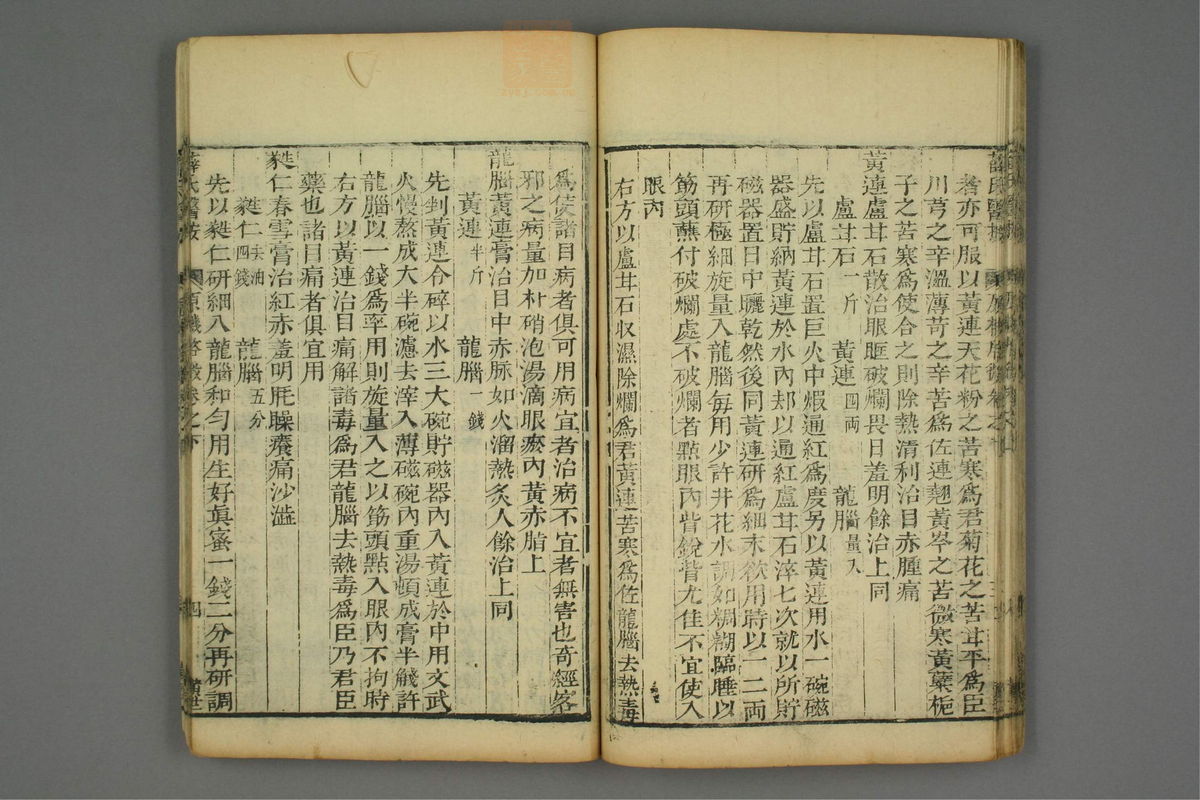 者亦可服以黃連天花粉之苦寒爲君菊花之苦甘平爲臣
川芎之辛溫薄苛之辛苦爲佐連翹黃岑之苦微寒黃蘗梔
子之苦寒爲使合之則除熱清利治目赤腫痛
黃連盧甘石散治眼眶破爛畏日羞明餘治上同
盧甘石一斤 黃連四兩 龍腦量入
先以盧甘石置巨火中煆通紅爲度另以黃連用水一碗磁
器盛貯納黃連於水內却以通紅盧甘石淬七次就以所貯
磁器置日中曬乾然後同黃連硏爲細末欲用時以一二兩
再硏極細旋量入龍腦每用少許井花水調如稠糊臨睡以
筋頭蘸付破爛處不破爛者點眼內眥銳眥尤佳不宜使入
眼內
右方以盧甘石収濕除爛爲君黃連苦寒爲佐龍腦去熱毒
爲使諸目病者俱可用病宜者治病不宜者無害也奇經客
邪之病量加朴硝泡湯滴眼瘀內黃赤脂上
龍腦黃連膏治目中赤脉如火溜熱炙人餘治上同
黃連半斤 龍腦一錢
先剉黃連令碎以水三大碗貯磁器內入黃連於中用文武
火慢熬成大半碗濾去滓入薄磁碗內重湯頓成膏半錢許
龍腦以一錢爲率用則旋量入之以筋頭點入眼內不拘時
右方以黃連治目痛解諸毒爲君龍腦去熱毒爲臣乃君臣
藥也諸目痛者俱宜用
蕤仁春雪膏治紅赤羞明眊矂癢痛沙澁
蕤仁去油四錢 龍腦五分
先以蕤仁硏細入龍腦和勻用生好眞蜜一錢二分再硏調
薛氏醫按 原機啓微卷之下 四